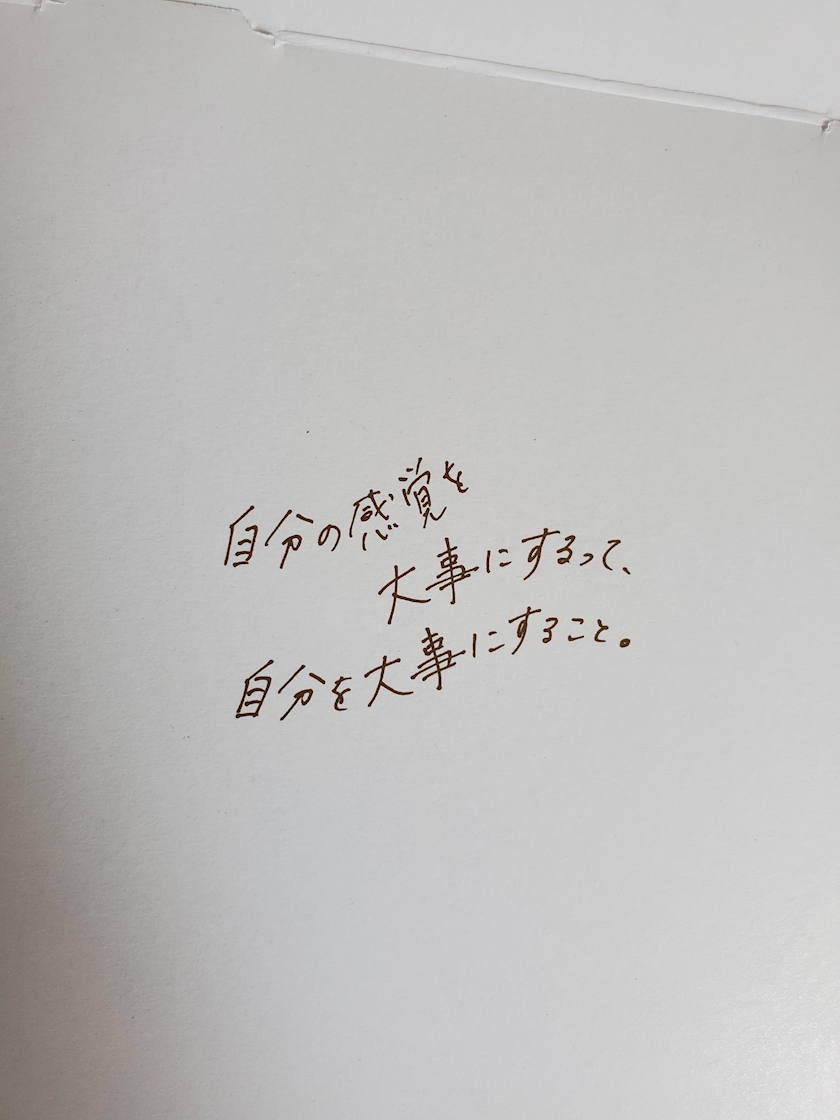 自分の感覚を
大事にするって、
自分を大事にすること。